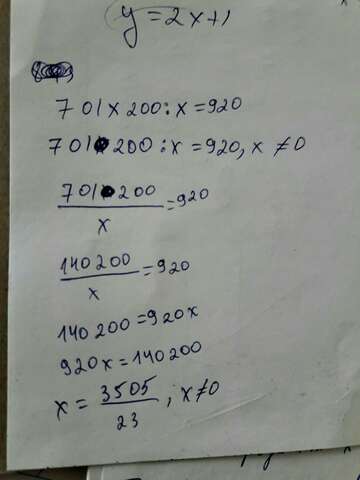 y=2x+1
701x200:x=920
701•200:x=920, x≠0
701•200/x=920
140200/x=920
140200=920x
920x=140200
x=3505/23; x≠0